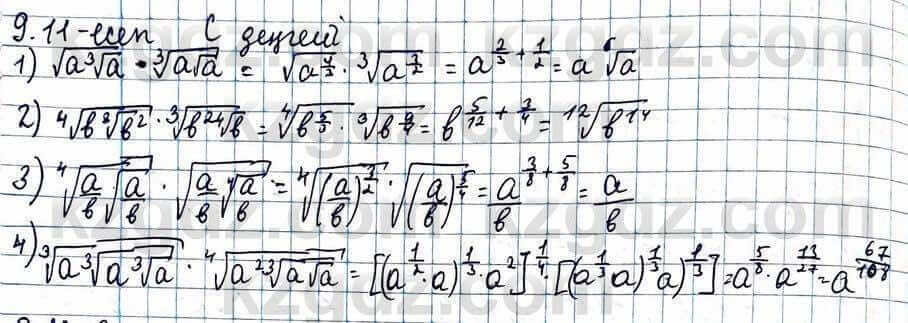 9.11-есеп С деңгей
1) √(a∛a) · ∛(a√a) = √(a^(4/3)) · ∛(a^(3/2)) = a^(2/3 + 1/2) = a ⁶√a
2) ⁴√(b∛(b²)) · ∛(b² ⁴√b) = ⁴√(b^(5/3)) · ∛(b^(9/4)) = b^(5/12 + 3/4) = ¹²√(b¹⁴)
3) ⁴√(a/b √(a/b)) · √(a/b ⁴√(a/b)) = ⁴√((a/b)^(3/2)) · √((a/b)^(5/4)) = a/b^(3/8 + 5/8) = a/b
4) ∛(a∛(a∛a)) · ⁴√(a²∛(a√a)) = [(a^(1/2) · a)^(1/3) · a²]^(1/4) · [(a^(1/3) a)^(1/3) a)^(1/3)] = a^(5/8) · a^(13/27) = a^(67/108)